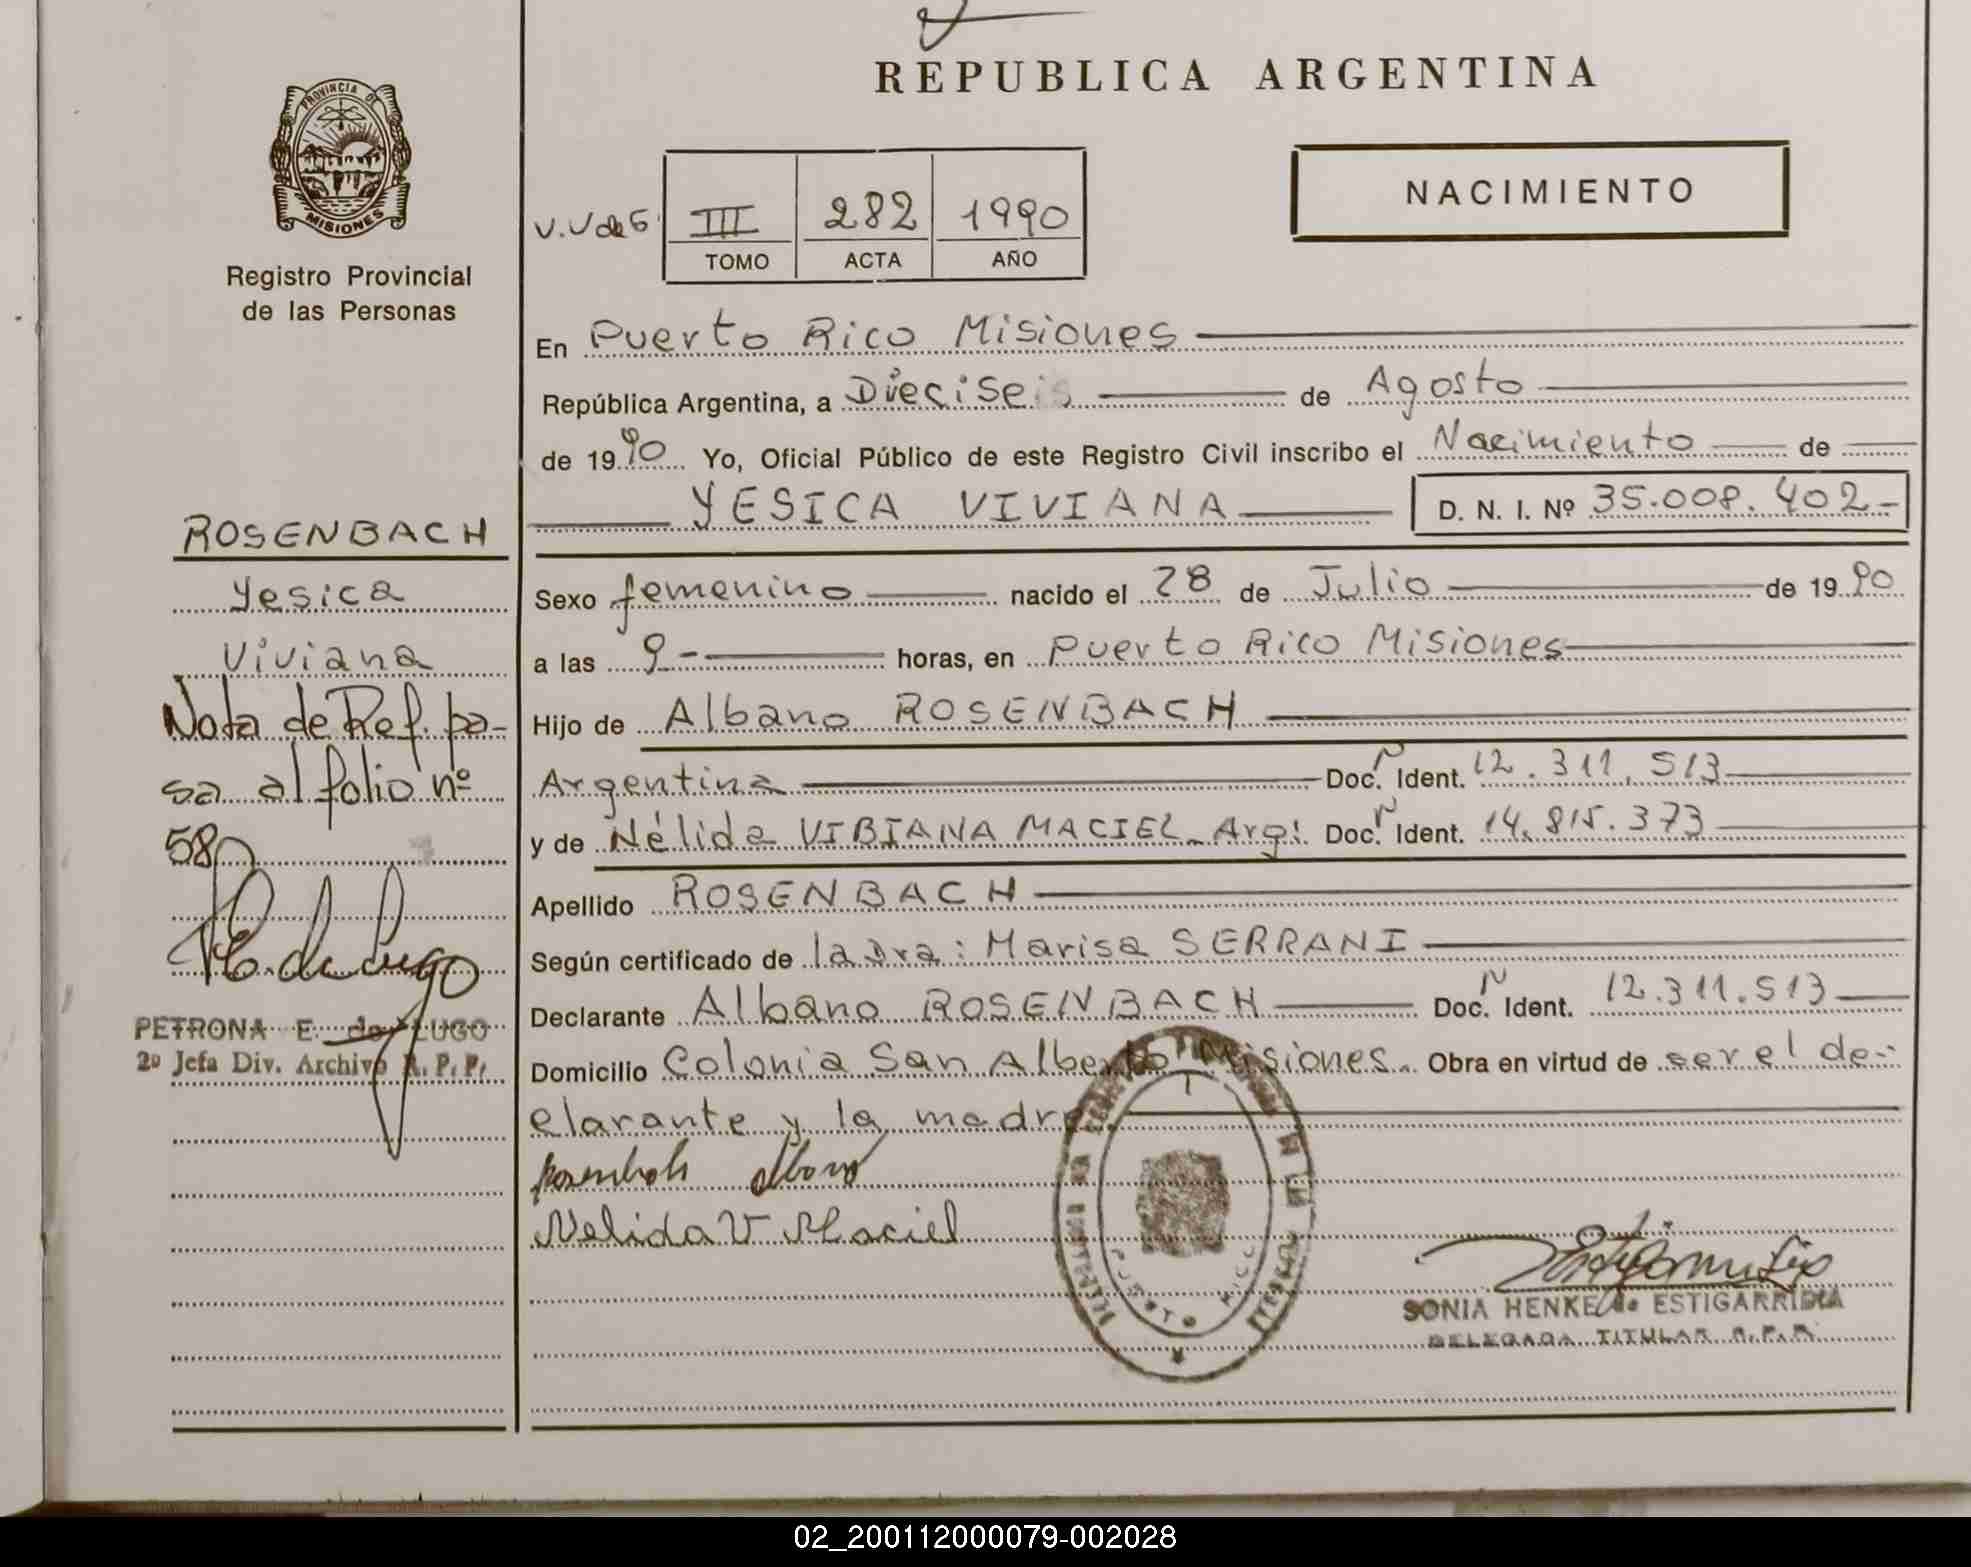 REPUBLICA ARGENTINA
PROVINCIA DE
MISIONES
Registro Provincial
de las Personas
V.V de 5
III 282 1990
TOMO ACTA AÑO
NACIMIENTO
En Puerto Rico Misiones
República Argentina, a Dieciseis de Agosto
de 1990 Yo, Oficial Público de este Registro Civil inscribo el Nacimiento de
YESICA VIVIANA D. N. I. Nº 35.008.402-
Sexo femenino nacido el 28 de Julio de 1990
a las 9- horas, en Puerto Rico Misiones
Hijo de Albano ROSENBACH
Argentina Doc. N Ident. 12.311.513
y de Nélida VIBIANA MACIEL Arg: Doc. N Ident. 14.815.373
Apellido ROSENBACH
Según certificado de la Dra: Marisa SERRANI
Declarante Albano ROSENBACH Doc. N Ident. 12.311.513
Domicilio Colonia San Alberto Misiones. Obra en virtud de ser el de-
clarante y la madre.
Nelida V Maciel
PUERTO RICO
SONIA HENKE de ESTIGARRIBIA
DELEGADA TITULAR R.P.P.
ROSENBACH
Yesica
Viviana
Nota de Ref. pa-
sa al folio nº
580
E. de Lugo
PETRONA E. de LUGO
2º Jefa Div. Archivo R.P.P.
02_200112000079-002028